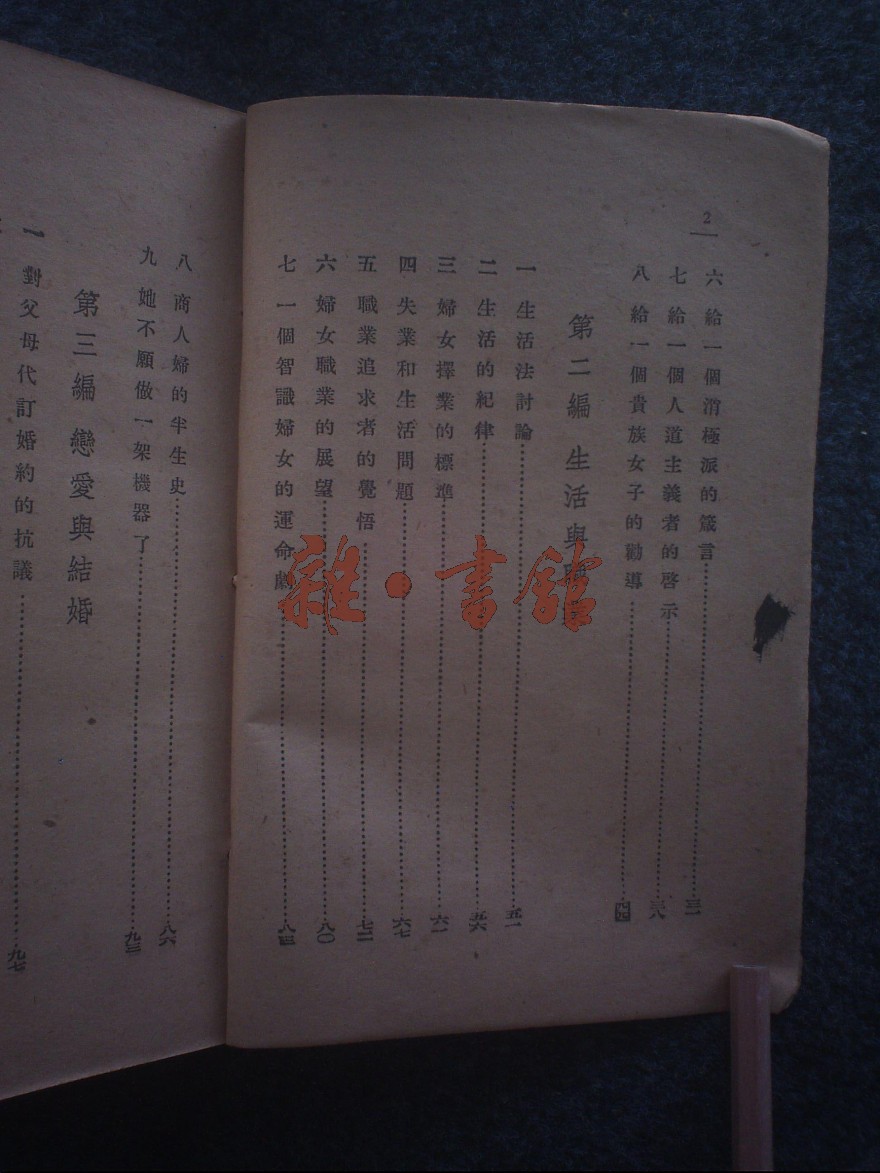 2
六 給一個消極派的箴言
七 給一個人道主義者的啓示 三八
八 給一個貴族女子的勸導
第二編 生活與職業
一 生活法討論 五一
二 生活的紀律 五六
三 婦女擇業的標準 六一
四 失業和生活問題 六七
五 職業追求者的覺悟 七二
六 婦女職業的展望 八〇
七 一個智識婦女的運命劇 八四
八 商人婦的半生史 八六
九 她不願做一架機器了 九三
第三編 戀愛與結婚
一 對父母代訂婚約的抗議 九七
雜·書館